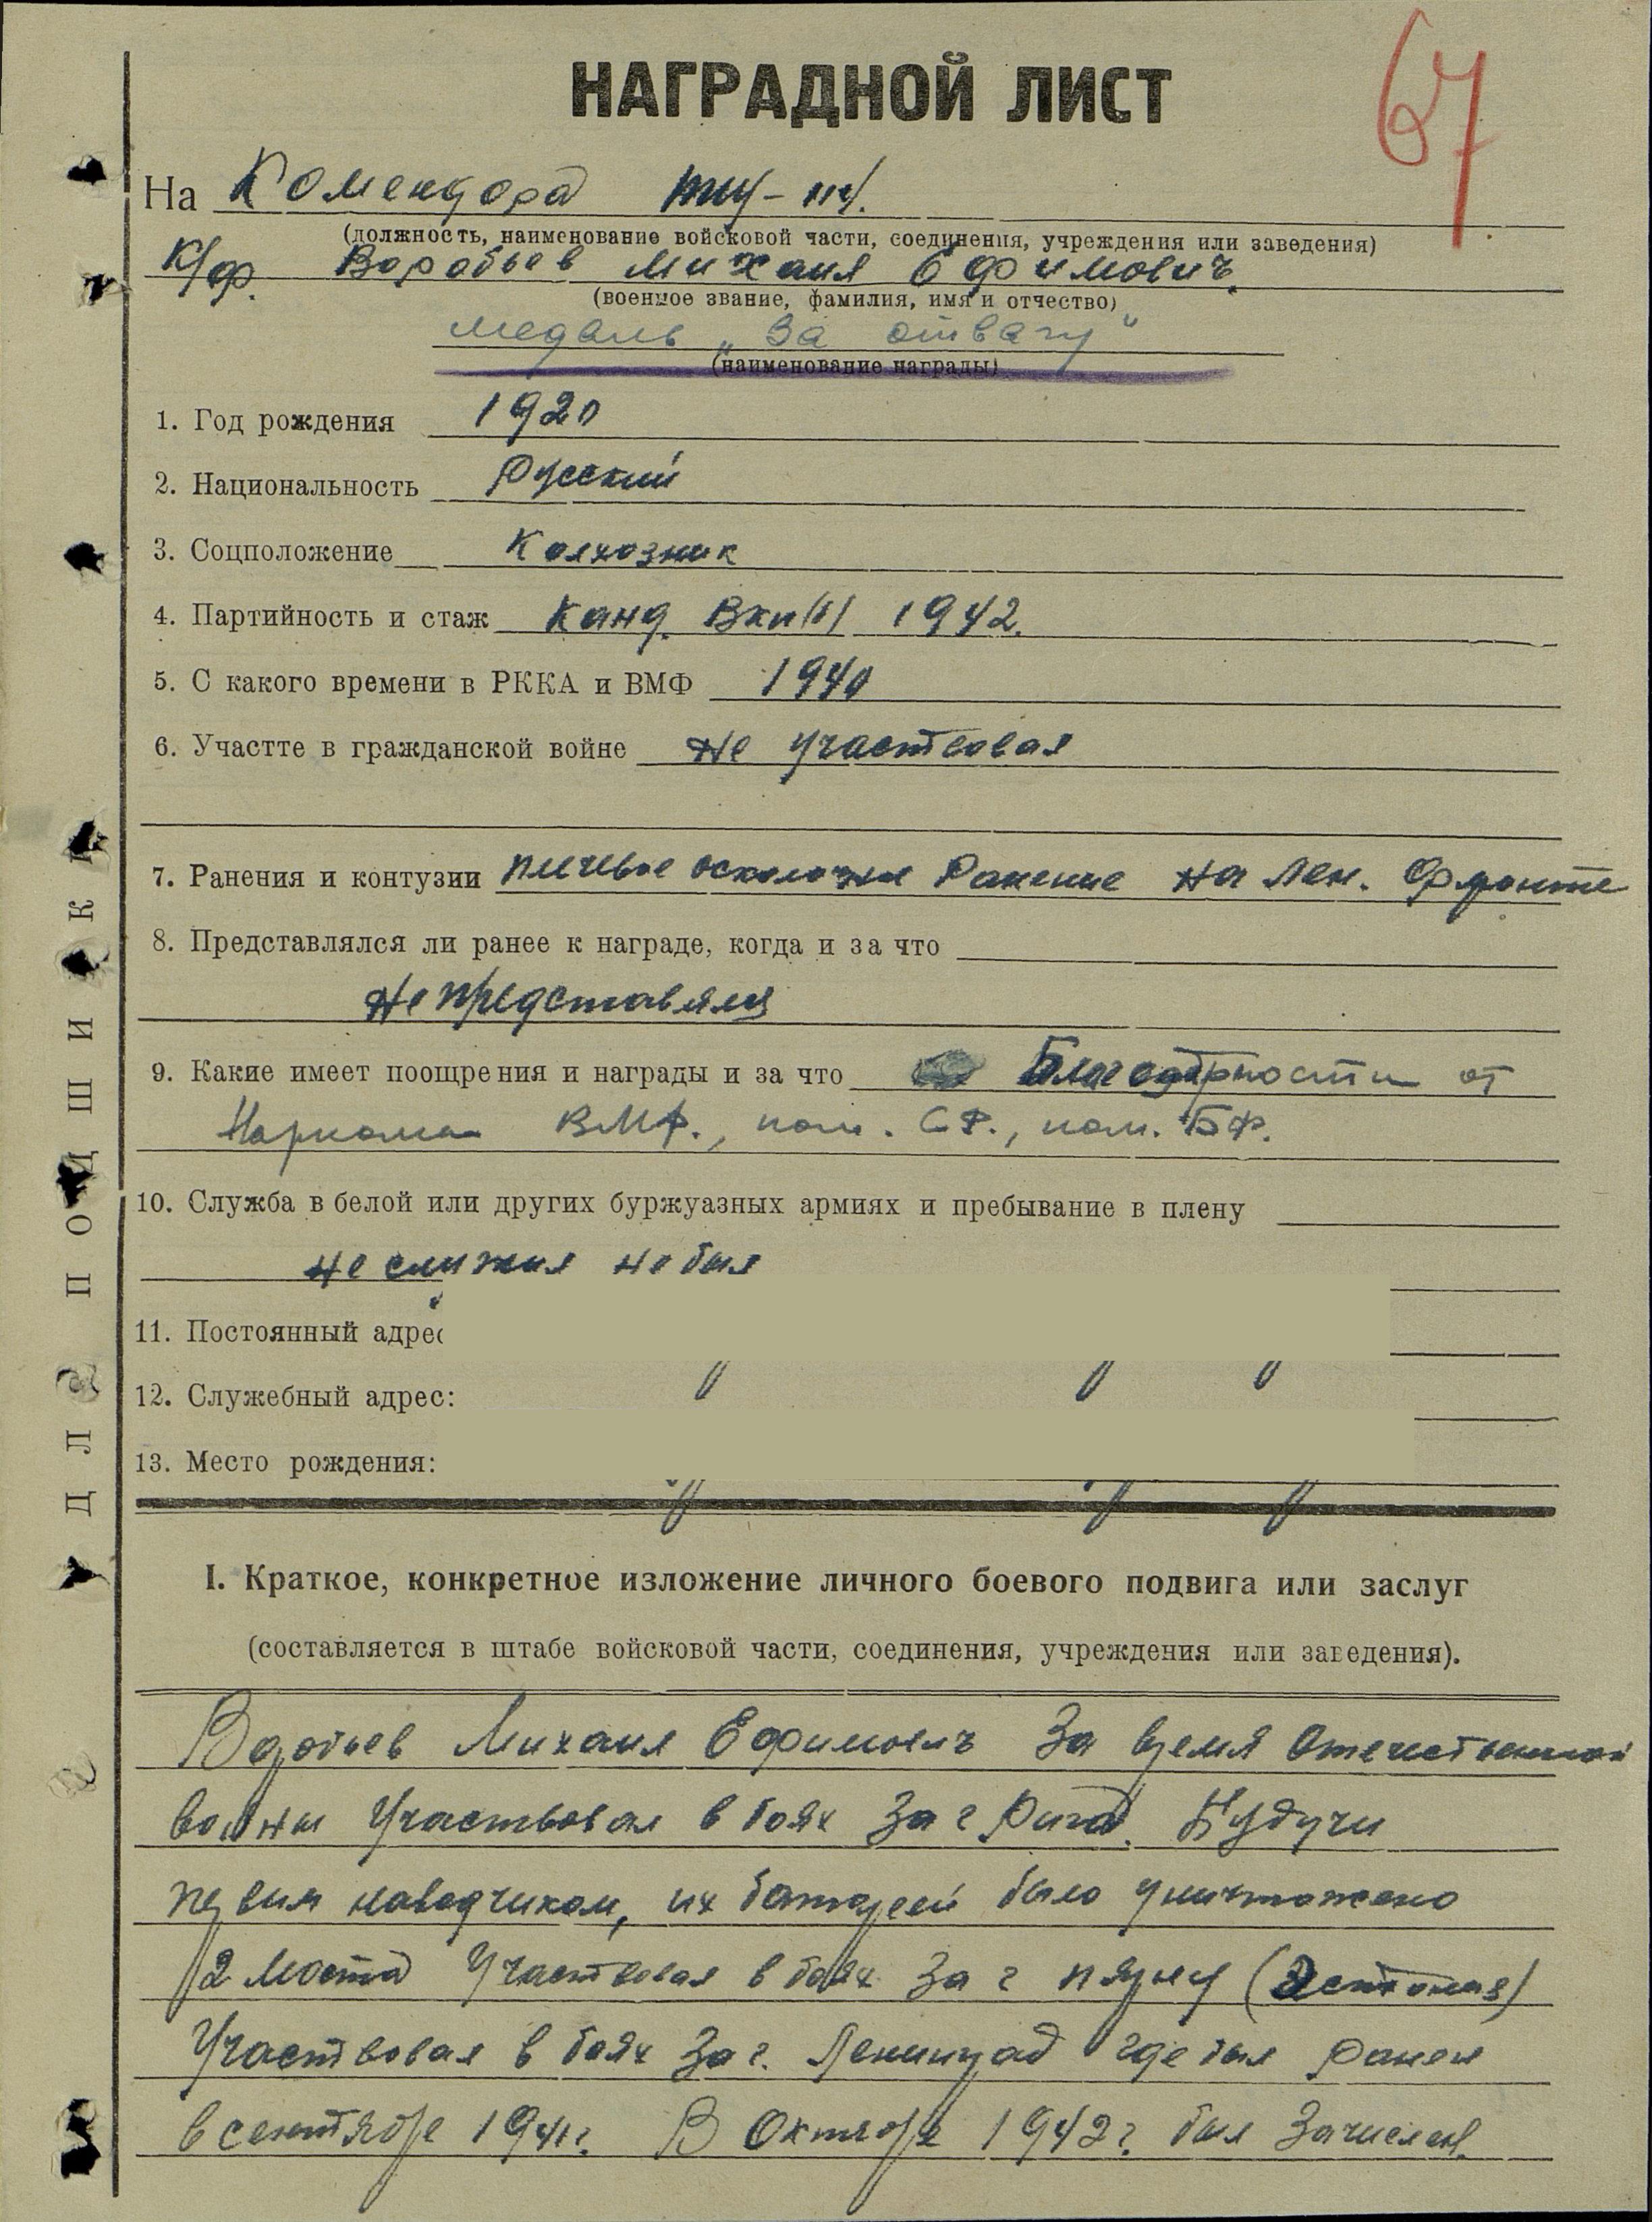 67
НАГРАДНОЙ ЛИСТ
На Комендора ТЩ-114.
(должность, наименование войсковой части, соединения, учреждения или заведения)
К/ф. Воробьев Михаил Ефимович.
(военное звание, фамилия, имя и отчество)
медаль „За отвагу"
(наименование награды)
1. Год рождения 1920
2. Национальность Русский
3. Соцположение Колхозник
4. Партийность и стаж Канд. Вкп(б) 1942.
5. С какого времени в РККА и ВМФ 1940
6. Участте в гражданской войне Не участвовал
7. Ранения и контузии плечевое осколочное Ранение на Лен. Фронте
8. Представлялся ли ранее к награде, когда и за что
Не представлялся
9. Какие имеет поощрения и награды и за что Благодарности от
Наркома ВМФ., ком. СФ., ком. БФ.
10. Служба в белой или других буржуазных армиях и пребывание в плену
не служил не был
11. Постоянный адрес
12. Служебный адрес:
13. Место рождения:
I. Краткое, конкретное изложение личного боевого подвига или заслуг
(составляется в штабе войсковой части, соединения, учреждения или заведения).
Воробьев Михаил Ефимович За время Отечественной
войны Участвовал в боях За г Рига. Будучи
первым наводчиком, их батареей было уничтожено
2 моста Участвовал в боях За г пярну (Эстония)
Участвовал в боях За г. Ленинград где был Ранен
в сентябре 1941г. В Октябре 1942г. был Зачислен.
ДЛЯ ПОДШИВКИ